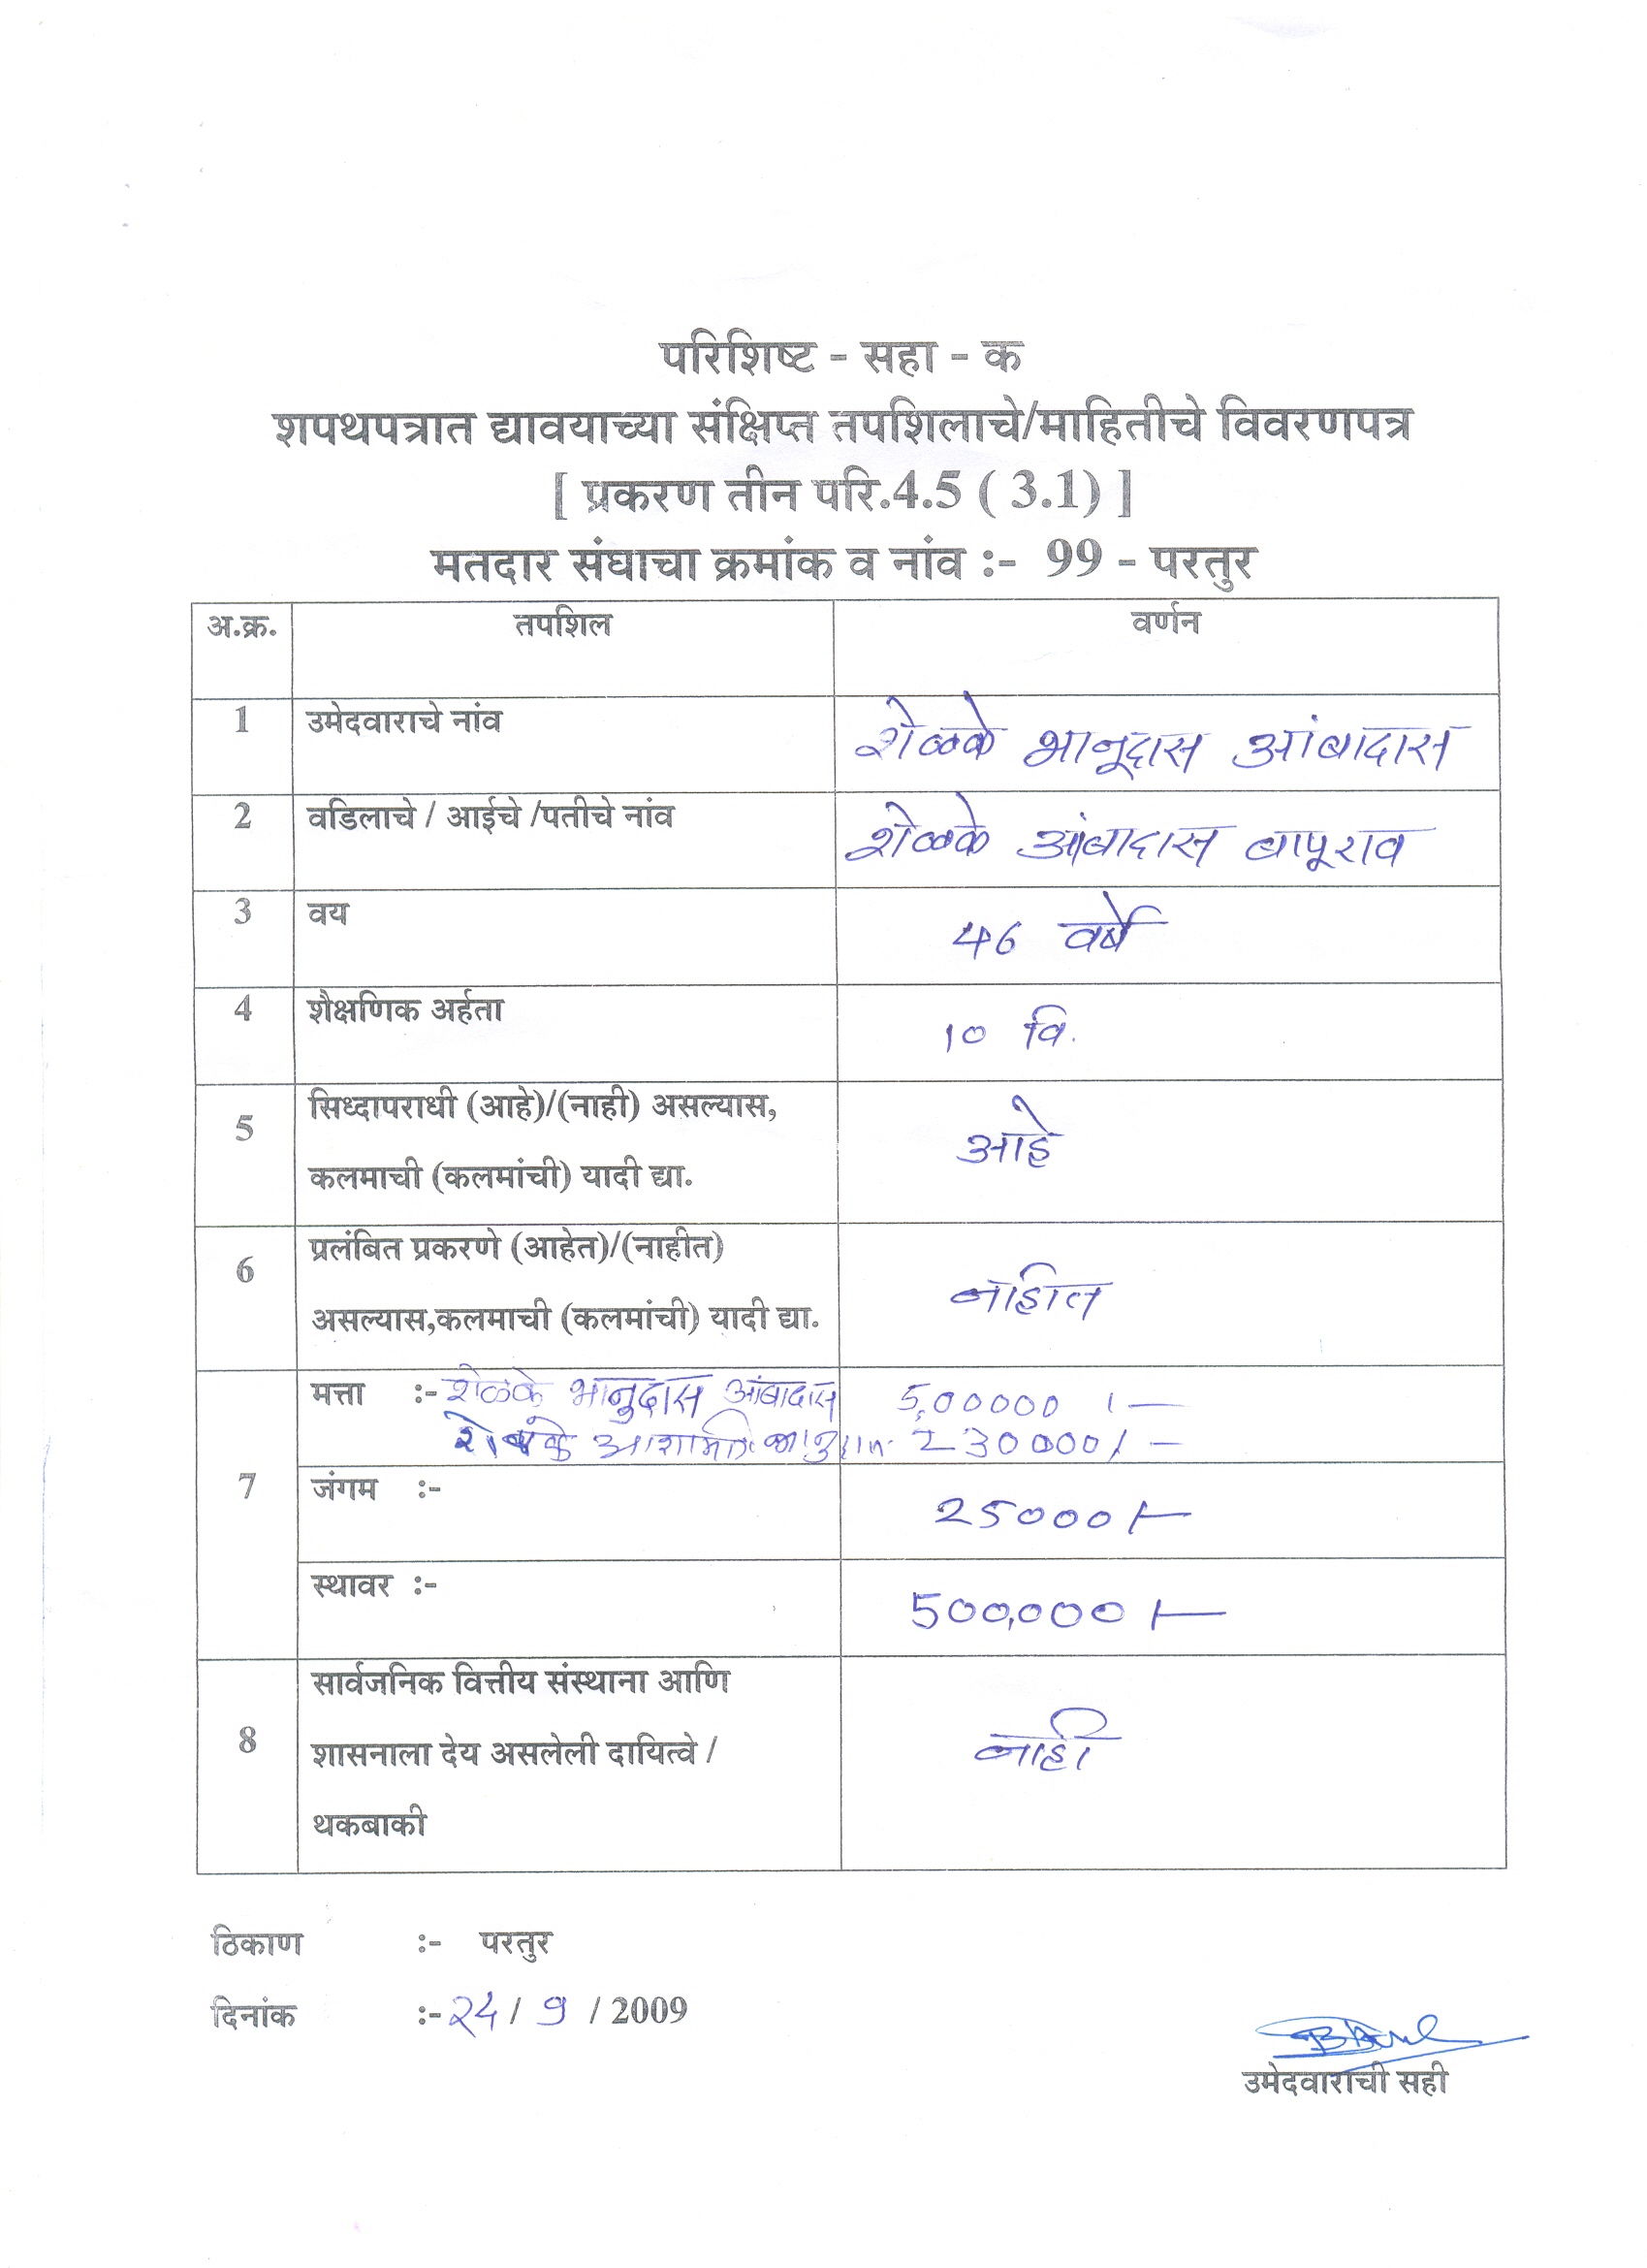 परिशिष्ट - सहा - क
शपथपत्रात द्यावयाच्या संक्षिप्त तपशिलाचे/माहितीचे विवरणपत्र
[ प्रकरण तीन परि.4.5 ( 3.1) ]
मतदार संघाचा क्रमांक व नांव :- 99 - परतुर
अ.क्र. तपशिल वर्णन
1 उमेदवाराचे नांव शेळके भानूदास आंबादास
2 वडिलाचे / आईचे /पतीचे नांव शेळके आंबादास बापूराव
3 वय 46 वर्षे
4 शैक्षणिक अर्हता 10 वि.
5 सिध्दापराधी (आहे)/(नाही) असल्यास, आहे
कलमाची (कलमांची) यादी द्या.
6 प्रलंबित प्रकरणे (आहेत)/(नाहीत) नाहीत
असल्यास,कलमाची (कलमांची) यादी द्या.
7 मत्ता :- शेळके भानुदास आंबादास 5,00000 /-
शेळके 230000/-
जंगम :- 25000/-
स्थावर :- 500,000/-
8 सार्वजनिक वित्तीय संस्थाना आणि
शासनाला देय असलेली दायित्वे / नाही
थकबाकी
ठिकाण :- परतुर
दिनांक :- 24 / 9 / 2009
उमेदवाराची सही